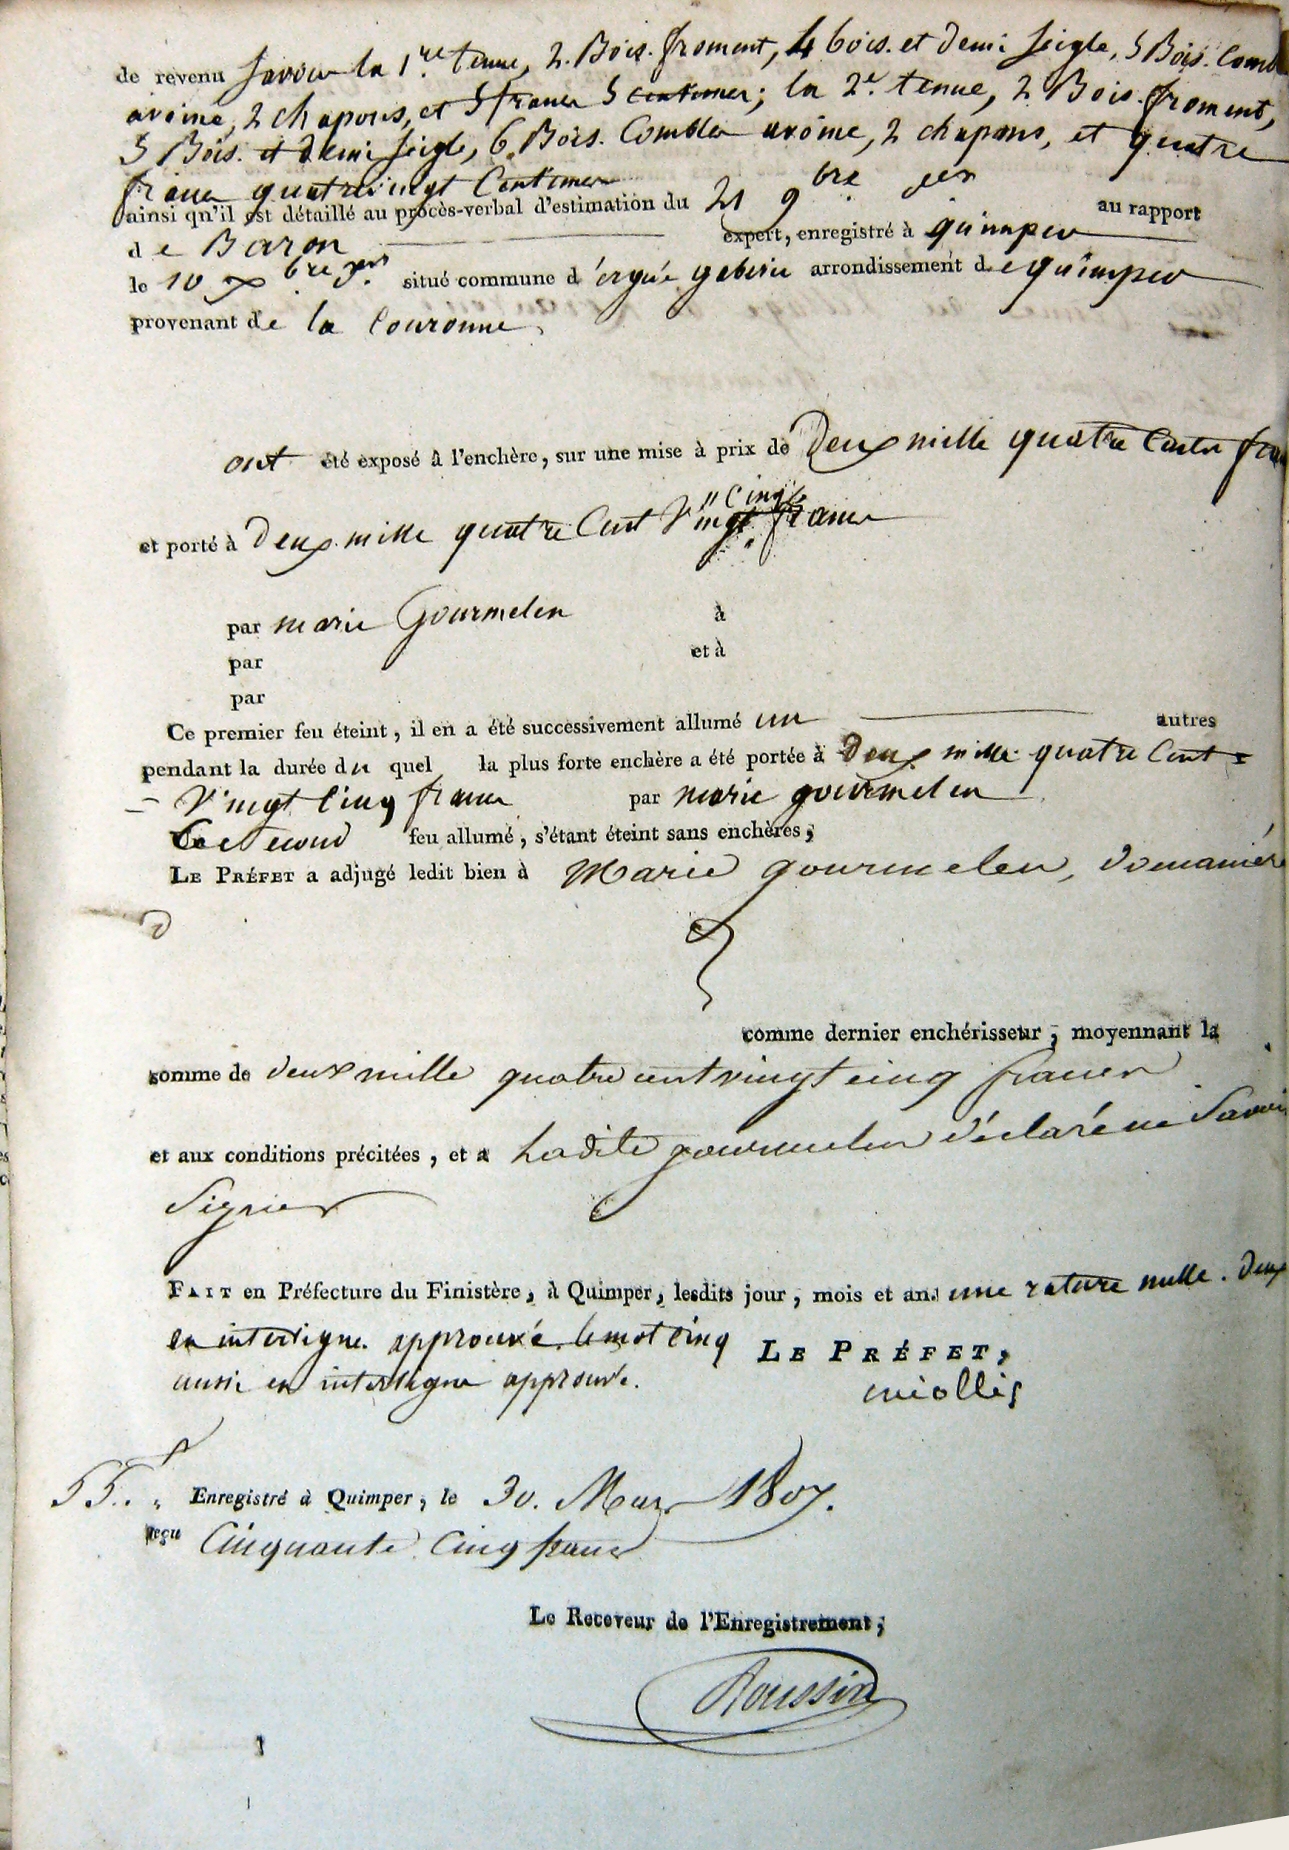 de revenu Savoir la 1.re tenue, 2. Bois. froment, 4 bois. et demi Seigle, 5 Bois. Comb
avoine, 2 chapons, et 5 francs 5 centimes; la 2.e tenue, 2 Bois. froment,
5 Bois. et demi Seigle, 6 Bois. Combles avoine, 2 chapons, et quatre
francs quatrevingt Centimes
ainsi qu'il est détaillé au procès-verbal d'estimation du 21 9bre dern au rapport
de Baron expert, enregistré à quimper
le 10 Xbre dern situé commune d'ergué gaberic arrondissement de quimper
provenant de la Couronne
ont été exposé à l'enchère, sur une mise à prix de Deux mille quatre Cents fran
"Cinq"
et porté à Deux mille quatre Cent Vingt francs
par marie Gourmelen à
par et à
par
Ce premier feu éteint, il en a été successivement allumé un autres
pendant la durée du quel la plus forte enchère a été portée à Deux mille quatre Cent
Vingt Cinq francs par marie gourmelen
Ce second feu allumé, s'étant éteint sans enchères;
LE PRÉFET a adjugé ledit bien à Marie gourmelen, domanière
comme dernier enchérisseur, moyennant la
somme de deux mille quatre cent vingt cinq francs
et aux conditions précitées, et a Ladite gourmelen déclaré ne Savoir
Signer
FAIT en Préfecture du Finistère, à Quimper, lesdits jour, mois et an. une rature nulle. Deux
en interligne approuvé. le mot cinq LE PRÉFET,
aussi en interligne approuvé. miollis
55.f " Enregistré à Quimper, le 30. Mars 1807.
reçu Cinquante Cinq francs
Le Receveur de l'Enregistrement,
Roussin